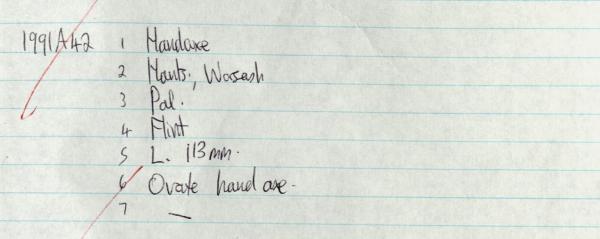 1991A42 1 Handaxe
2 Hants., Warsash
3 Pal.
4 Flint
5 L. 113mm.
6 Ovate hand axe.
7 —